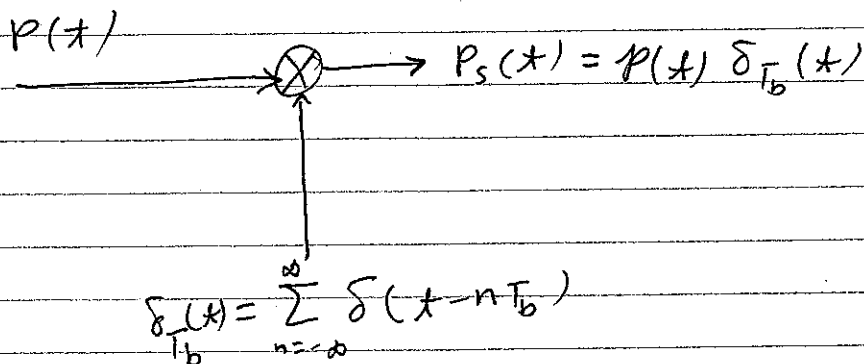 p(t)
p_s(t) = p(t) δ_{T_b}(t)
δ_{T_b}(t) = ∑_{n=-∞}^{∞} δ(t - nT_b)